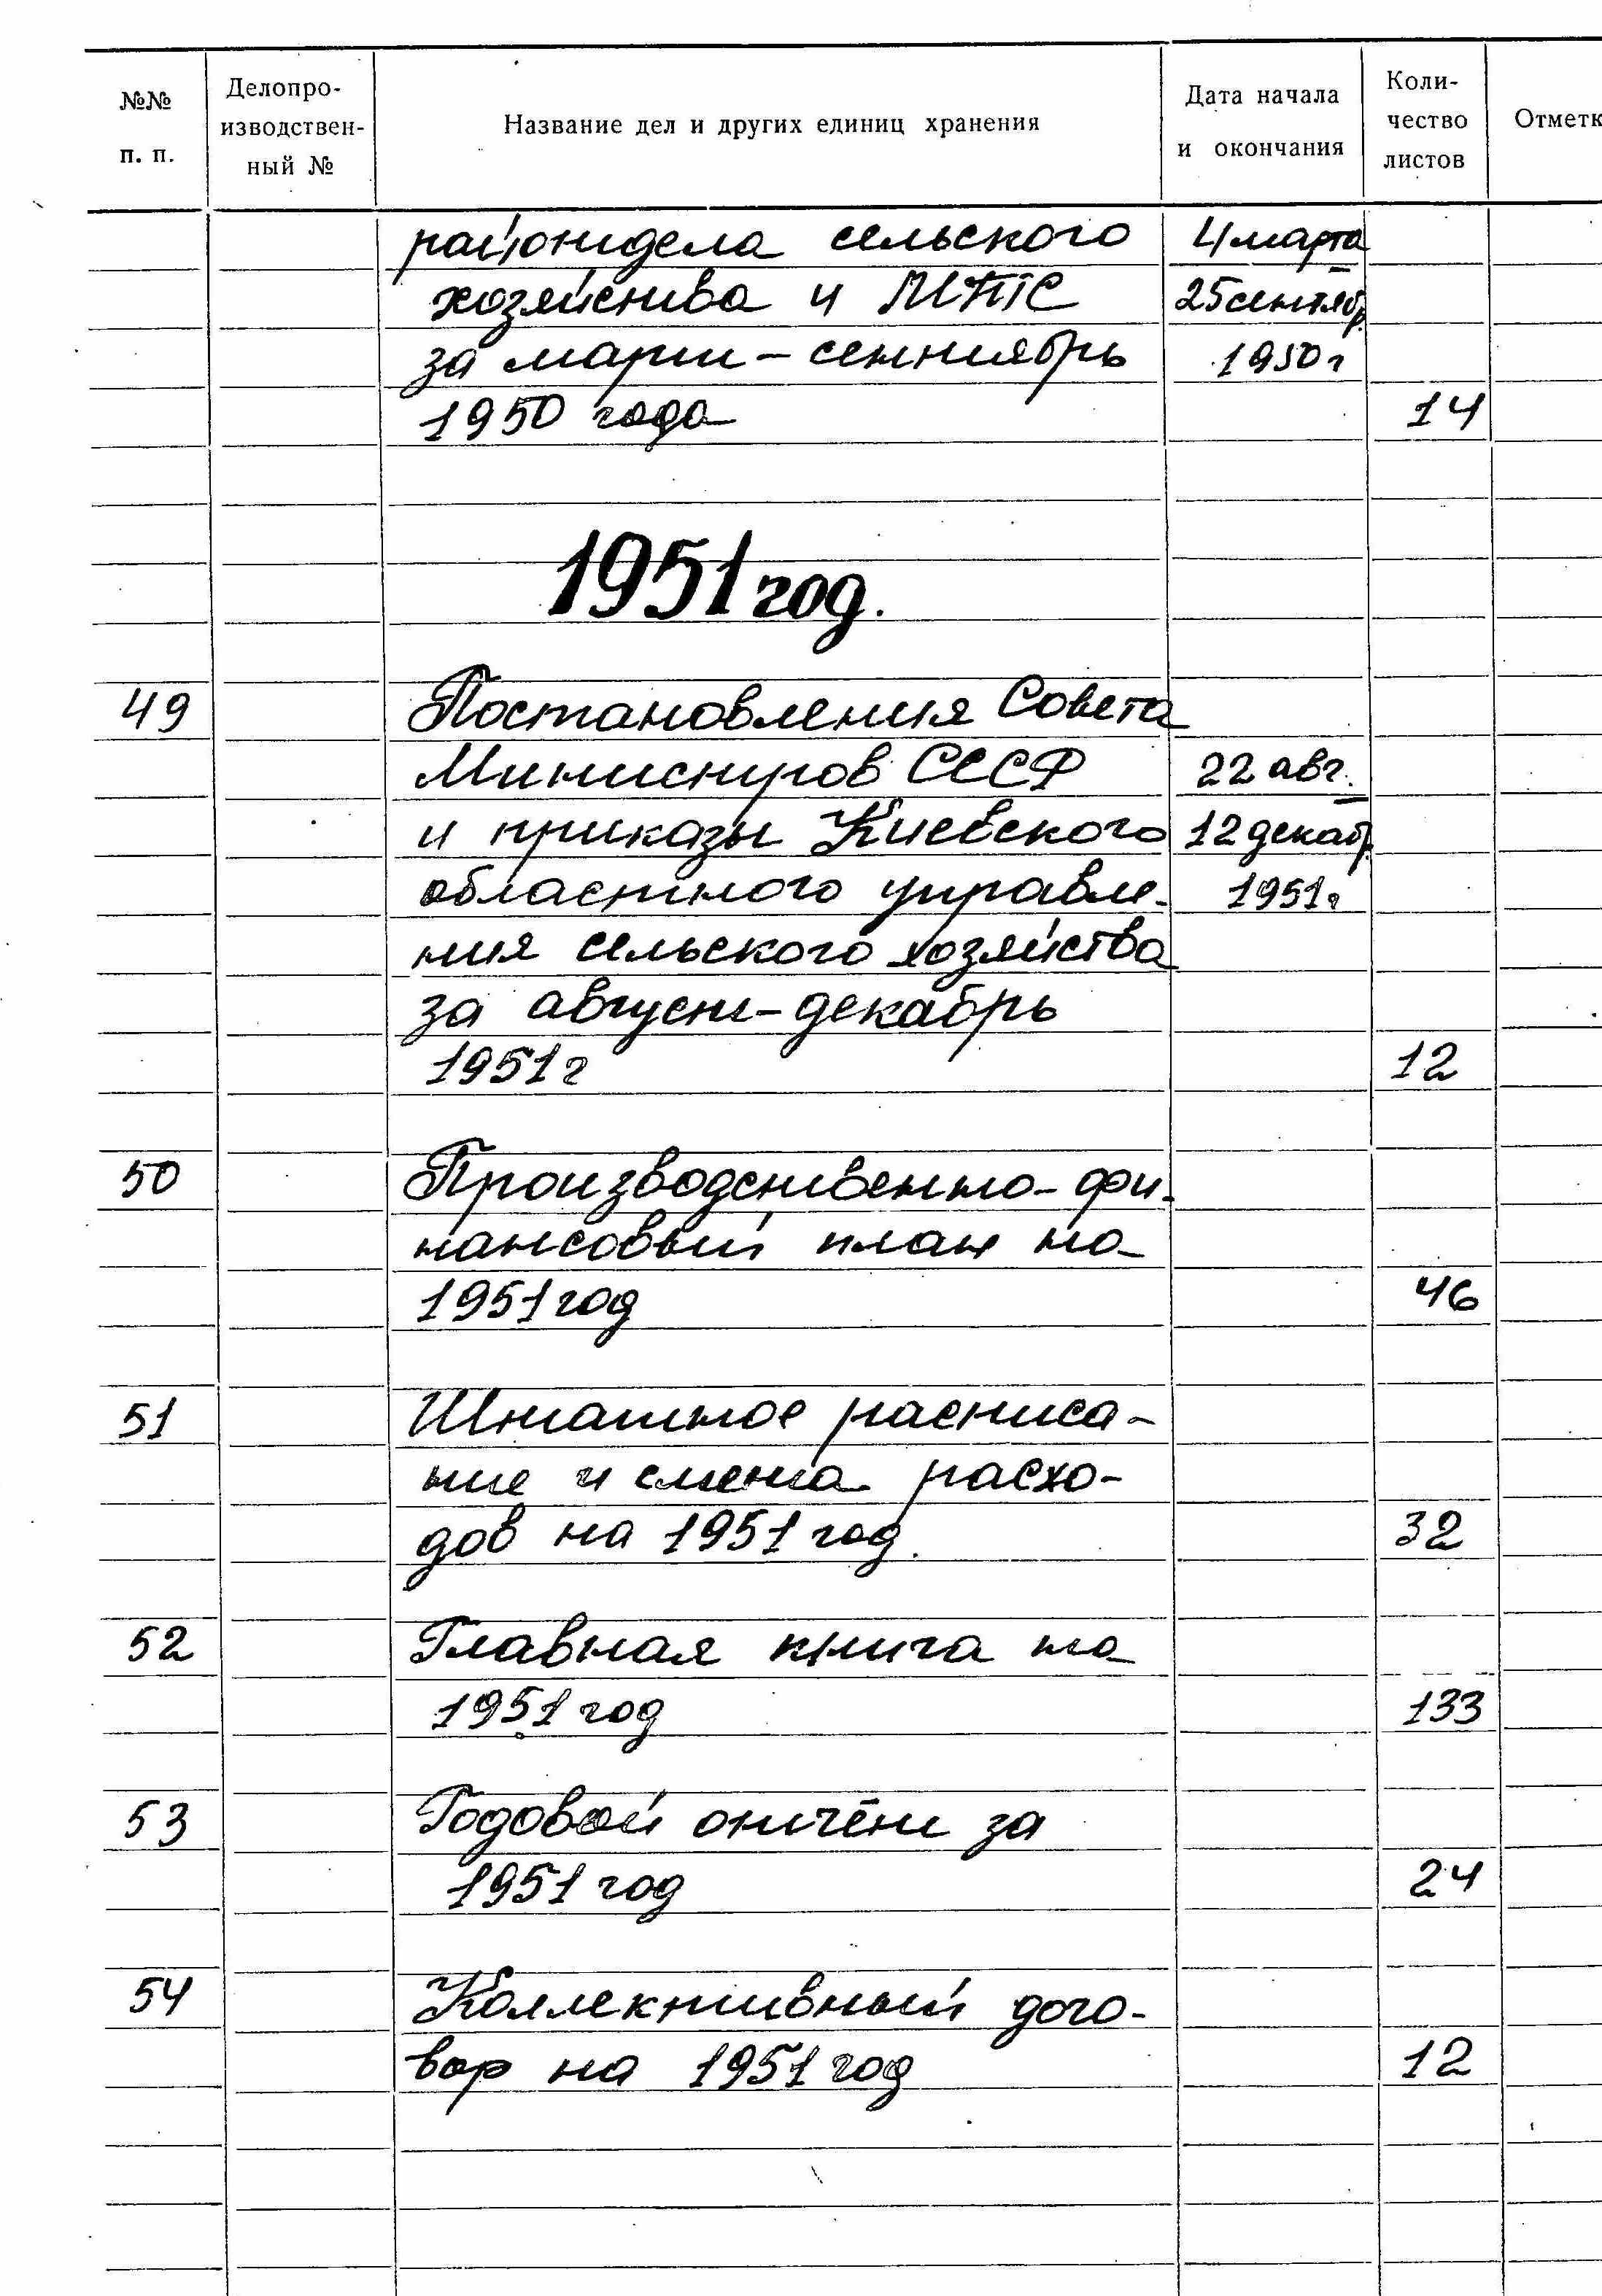 №№ п. п.
Делопро-
изводствен-
ный №
Название дел и других единиц хранения
Дата начала
и окончания
Коли-
чество
листов
Отметк
райотдела сельского 4 марта
хозяйства и МТС 25 сентябр.
за март – сентябрь 1950 г
1950 года 14
1951 год.
49 Постановления Совета
Министров СССР 22 авг.
и приказы Киевского 12 декабр.
областного управле- 1951 г
ния сельского хозяйства
за август – декабрь
1951 г 12
50 Производственно-фи-
нансовый план на
1951 год 46
51 Штатное расписа-
ние и смета расхо-
дов на 1951 год. 32
52 Главная книга на
1951 год 133
53 Годовой отчёт за
1951 год 24
54 Коллективный дого-
вор на 1951 год 12